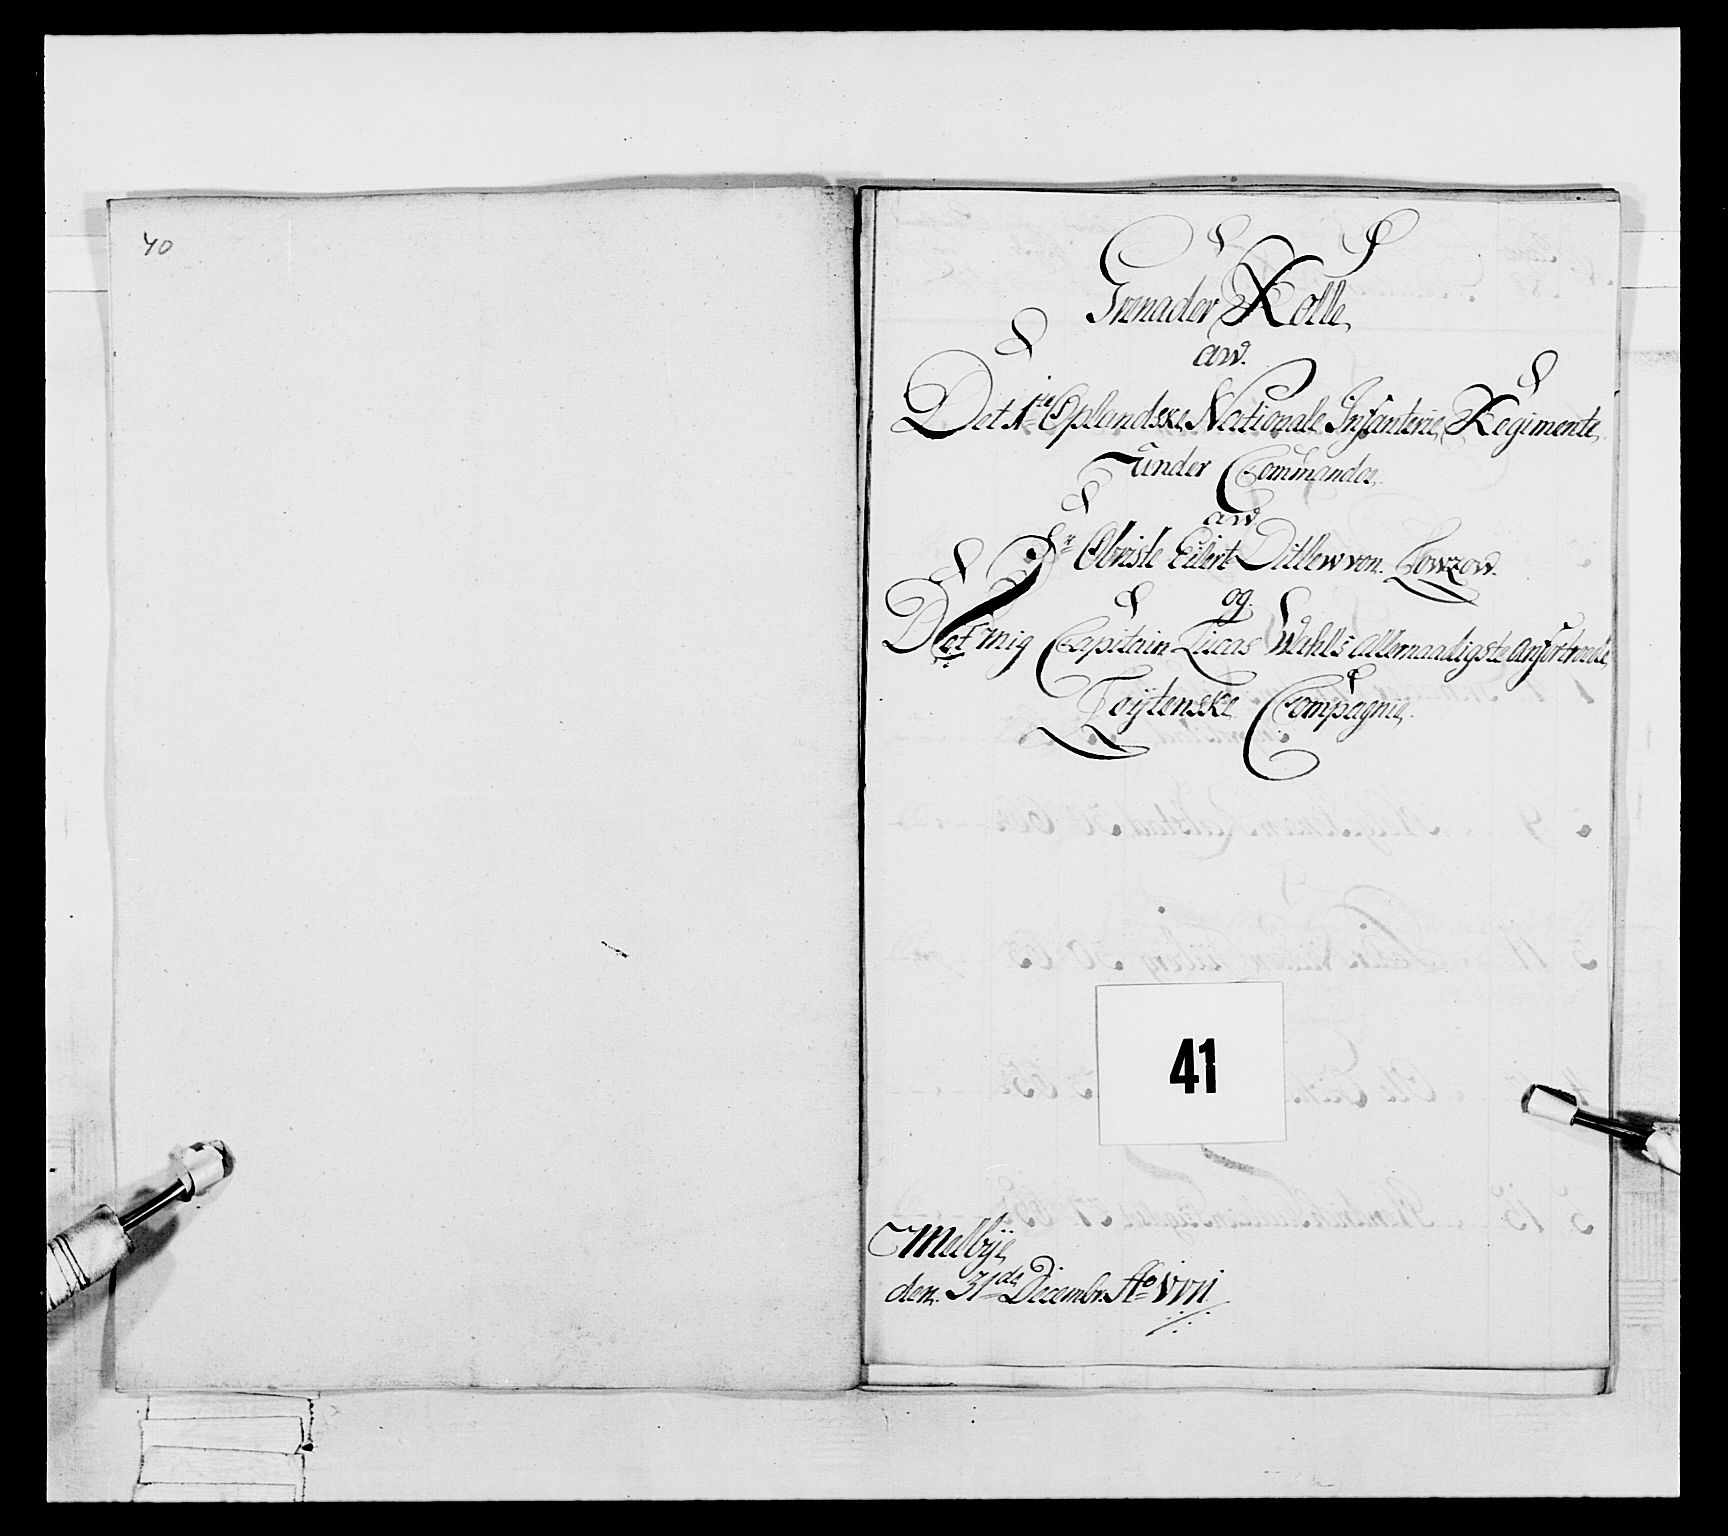 40
Grenader Rolle,
aw.
Det 1te Oplandske Nationale Infanterie Regimente,
under Commando,
aw
Hr Obriste Eilert Ditlew von Lowzow.
og.
Det mig Capitain Lucas Wahl's allernaadigste anfortroede,
Toÿtenske Compagnie,
41
Melbÿe,
den. 31de Decembr. Ao